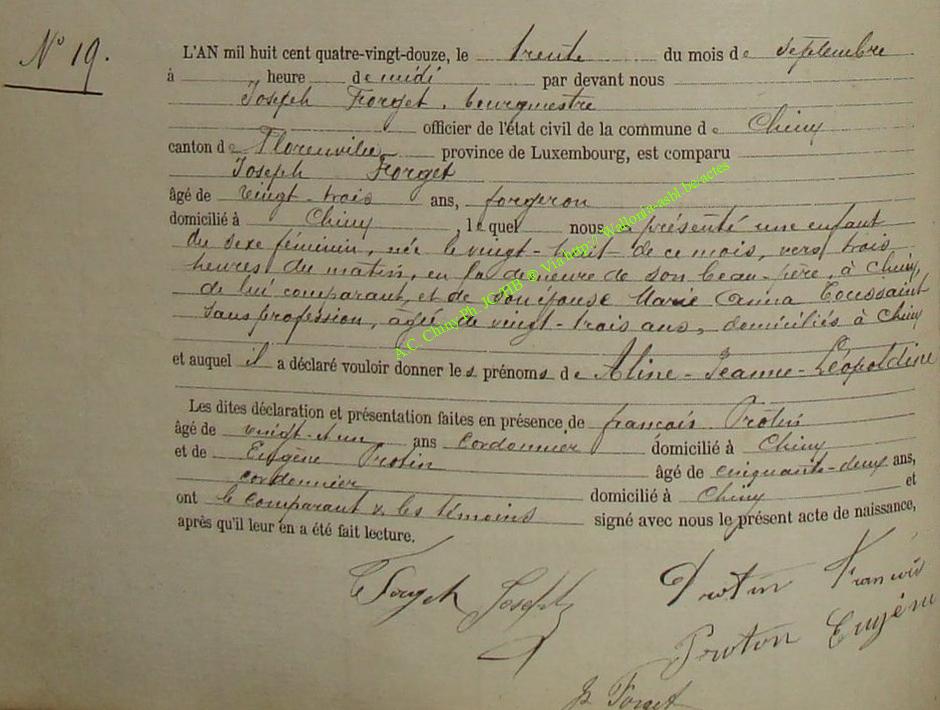 N° 19.
L'AN mil huit cent quatre-vingt-douze, le trente du mois de septembre
à " heure de midi par devant nous
Joseph Forget, bourgmestre
officier de l'état civil de la commune de Chiny
canton de Florenville, province de Luxembourg, est comparu
Joseph Forget
âgé de vingt-trois ans, forgeron
domicilié à Chiny, lequel nous a présenté une enfant
du sexe féminin, née le vingt-huit de ce mois, vers trois
heures du matin, en la demeure de son beau-père, à Chiny,
de lui comparant, et de son épouse Marie Anna Toussaint
sans profession, âgée de vingt-trois ans, domiciliés à Chiny
et auquel il a déclaré vouloir donner les prénoms de Aline-Jeanne-Léopoldine
Les dites déclaration et présentation faites en présence de françois Protin
âgé de vingt-un ans cordonnier domicilié à Chiny
et de Eugène Protin âgé de cinquante-deux ans,
cordonnier domicilié à Chiny et
ont le comparant & les témoins signé avec nous le présent acte de naissance,
après qu'il leur en a été fait lecture.
Forget Joseph
Protin François
Proton Eugéne
J. Forget
A.C. Chiny Ph. JC HB © Via http://Wallonia-asbl.be/actes